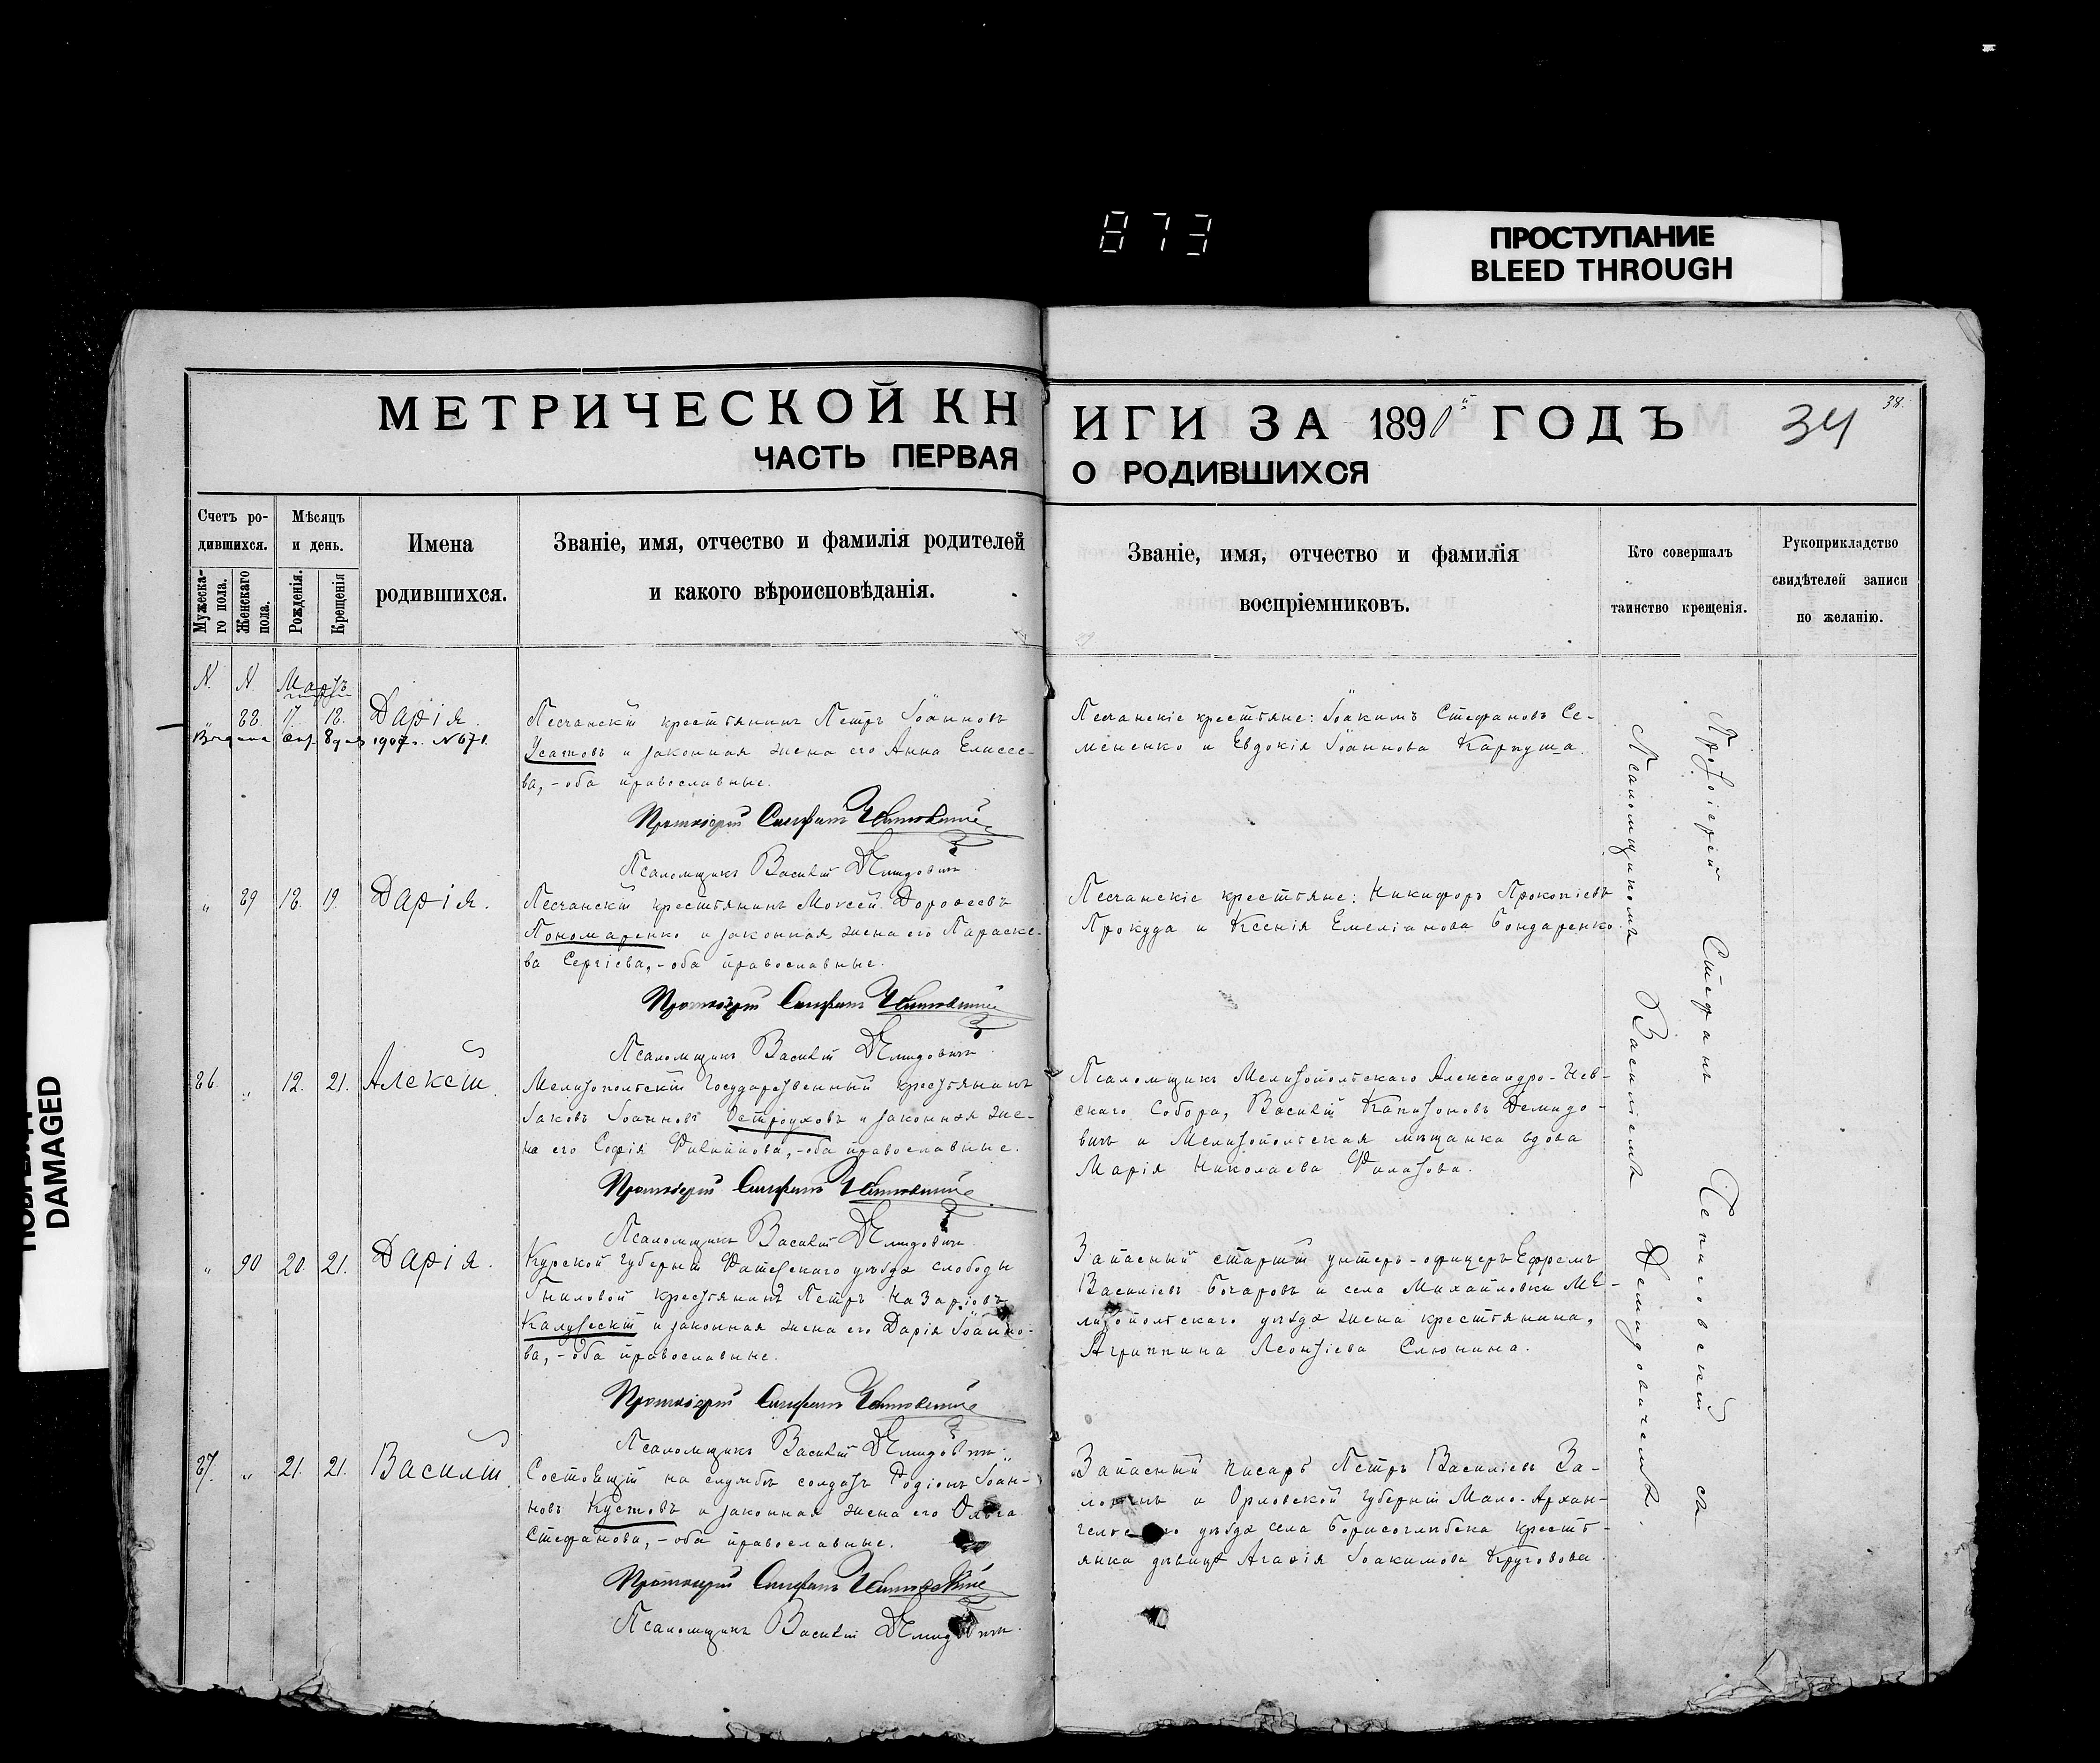 873
ПРОСТУПАНИЕ
BLEED THROUGH
DAMAGED
МЕТРИЧЕСКОЙ КНИГИ ЗА 1891й ГОДЪ
34
34.
ЧАСТЬ ПЕРВАЯ О РОДИВШИХСЯ
Счетъ ро-
дившихся.
Мужеска-
го пола.
Женскаго
пола.
Мѣсяцъ
и день.
Рожденія.
Крещенія
Имена
родившихся.
Званіе, имя, отчество и фамилія родителей
и какого вѣроисповѣданія.
Званіе, имя, отчество и фамилія
воспріемниковъ.
Кто совершалъ
таинство крещенія.
Рукоприкладство
свидѣтелей записи
по желанію.
N. N. Мартъ
" 88. 17. 18. Дарія.
1907 г. N 671.
Песчанскій крестьянинъ Петръ Іоанновъ
Усатовъ и законная жена его Анна Елисее-
ва, - оба православные.
Протоіерей Стефанъ
Псаломщикъ Василій Демидовичъ
Песчанскіе крестьяне: Іоакимъ Стефановъ Се-
мененко и Евдокія Іоаннова Карпуша.
" 89 18. 19. Дарія.
Песчанскій крестьянинъ Моисей Дорофеевъ
Пономаренко и законная жена его Параске-
ва Сергіева, - оба православные.
Протоіерей Стефанъ
Псаломщикъ Василій Демидовичъ
Песчанскіе крестьяне: Никифоръ Прокопіевъ
Прокуда и Ксенія Емеліанова Бондаренко.
86. " 12. 21. Алексій.
Мелитопольскій Государственный крестьянинъ
Іаковъ Іоанновъ Остроуховъ и законная же-
на его Софія Филиппова, - оба православные.
Протоіерей Стефанъ
Псаломщикъ Василій Демидовичъ
Псаломщикъ Мелитопольскаго Александро-Нев-
скаго Собора, Василій Капитоновъ Демидо-
вичъ и Мелитопольская мѣщанка вдова
Марія Николаева Филатова.
" 90 20. 21. Дарія.
Курской губерніи Фатежскаго уѣзда слободы
Гниловой крестьянинъ Петръ Назаріевъ
Калужскій и законная жена его Дарія Іоанно-
ва, - оба православные.
Протоіерей Стефанъ
Псаломщикъ Василій Демидовичъ
Запасный старшій унтеръ-офицеръ Ефремъ
Василіевъ Бочаровъ и села Михайловки Ме-
литопольскаго уѣзда жена крестьянина,
Агриппина Леонтіева Слюнина.
87. " 21. 21. Василій.
Состоящій на службѣ солдатъ Родіонъ Іоан-
новъ Кустовъ и законная жена его Ольга
Стефанова, - оба православные.
Протоіерей Стефанъ
Псаломщикъ Василій Демидовичъ
Запасный писарь Петръ Василіевъ За-
и Орловской губерніи Мало-Архан-
гельскаго уѣзда села Борисоглѣбска крестъ-
янка дѣвица Агафія Іоакимова Круговова.
Протоіерей Стефанъ съ
Псаломщикомъ Василіемъ Демидовичемъ.